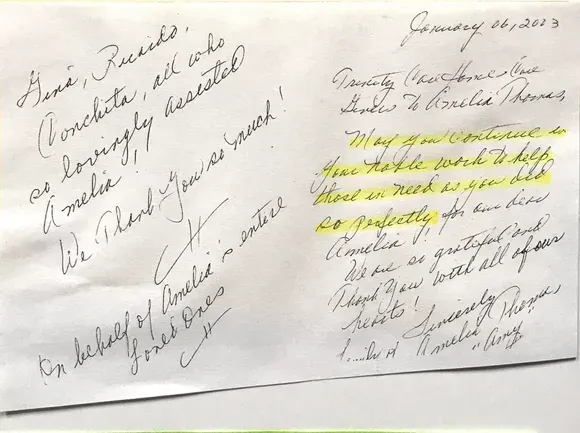 Gina, Ricardo,
Conchita, all who
so lovingly assisted
Amelia!
We Thank You so much!
On behalf of Amelia's entire
Loved Ones
January 06, 2023
Trinity Care Home Care
Given To Amelia Thomas,
May you continue in
your noble work to help
those in need as you did
so perfectly for our dear
Amelia!
We are so grateful and
Thank You with all of our
hearts!
Sincerely
Amelia Thomas
"Amy"